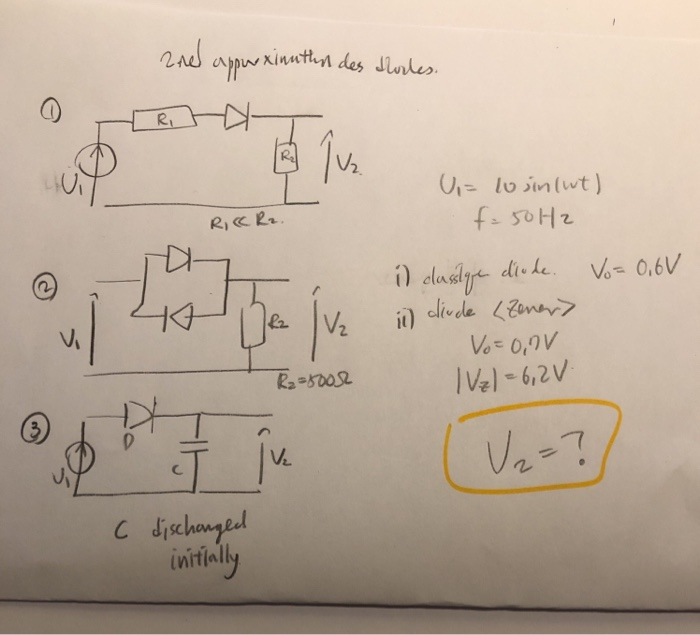 2nd approximation des diodes.
①
R₁
R₂
V₂
U₁
R₁ << R₂.
U₁ = 10 sin(wt)
f = 50Hz
②
V₁
R₂
V₂
R₂=500Ω
i) diode. V₀ = 0,6V
ii) diode <Zener>
V₀ = 0,7V
|Vz| = 6,2V
③
D
V₁
C
V₂
V₂ = ?
C discharged
initially